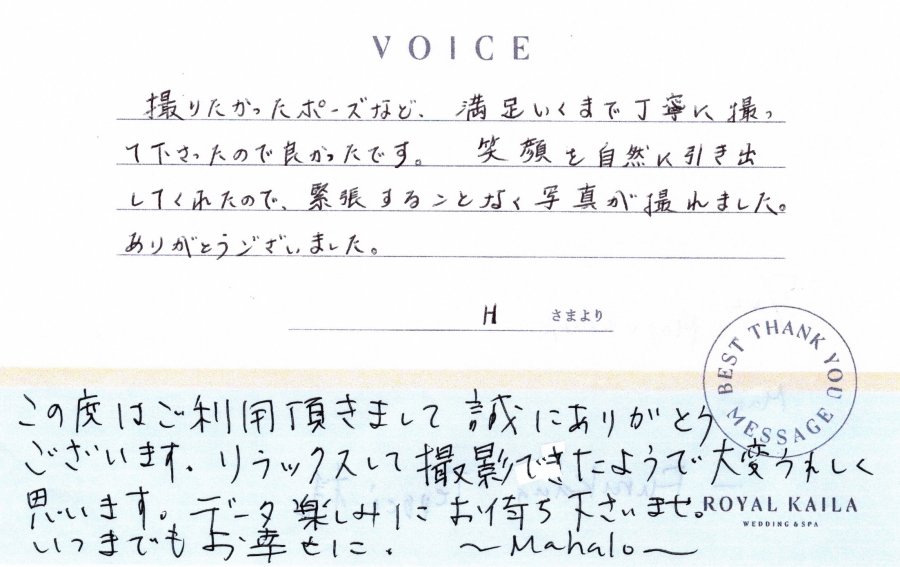 VOICE
撮りたかったポーズなど、満足いくまで丁寧に撮っ
て下さったので良かったです。 笑顔を自然に引き出
してくれたので、緊張することなく写真が撮れました。
ありがとうございました。
H さまより
BEST THANK YOU MESSAGE
この度はご利用頂きまして誠にありがとう
ございます。リラックスして撮影できたようで大変うれしく
思います。データ楽しみにお待ち下さいませ。
ROYAL KAILA
WEDDING & SPA
いつまでもお幸せに。 〜Mahalo〜